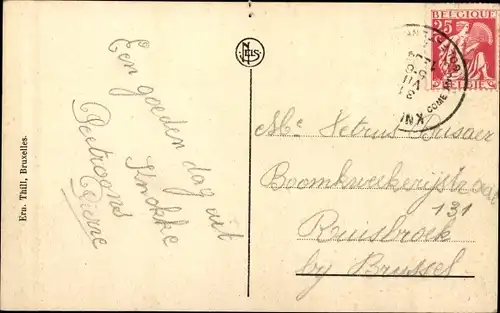 Een goeden dag uit
Knokke
Peetroons
Pierre
Ern. Thill, Bruxelles.
NELS
BELGIQUE
25
BELGIË
Mr Petrus Dusaer
Boomkweekerijstraat
131
Ruisbroek
by Brussel